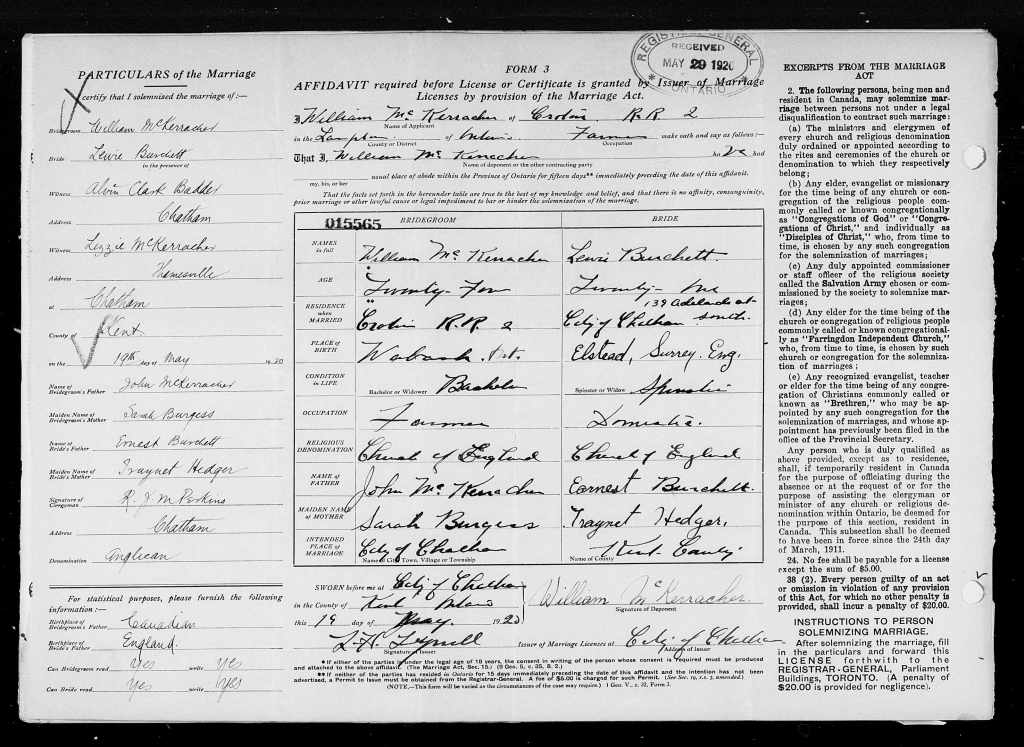 PARTICULARS of the Marriage
I certify that I solemnized the marriage of:—
Bridegroom William McKerracher
Bride Lewie Burchett
in the presence of
Witness Alvin Clark Badder
Address Chatham
Witness Lizzie McKerracher
Address Thamesville
at Chatham
County of Kent
on the 19th day of May 1920
Name of Bridegroom's Father John McKerracher
Maiden Name of Bridegroom's Mother Sarah Burgess
Name of Bride's Father Ernest Burchett
Maiden Name of Bride's Mother Traynet Hedger
Signature of Clergyman R. J. M. Perkins
Chatham
Address
Denomination Anglican
For statistical purposes, please furnish the following information:—
Birthplace of Bridegroom's Father Canadian
Birthplace of Bride's Father England.
Can Bridegroom read Yes write Yes
Can Bride read Yes write Yes
FORM 3
AFFIDAVIT required before License or Certificate is granted by Issuer of Marriage
Licenses by provision of the Marriage Act.
REGISTRAR GENERAL
RECEIVED
MAY 29 1920
ONTARIO
I William McKerracher of Croton R.R. 2
Name of Applicant
in the of Farmer make oath and say as follows:—
County or District Occupation
That I, William McKerracher ha ve had
Name of deponent or the other contracting party
usual place of abode within the Province of Ontario for fifteen days** immediately preceding the date of this affidavit.
my, his, or her
That the facts set forth in the hereunder table are true to the best of my knowledge and belief, and that there is no affinity, consanguinity,
prior marriage or other lawful cause or legal impediment to bar or hinder the solemnization of the marriage.
015565 BRIDEGROOM BRIDE
NAMES in full William McKerracher Lewie Burchett.
AGE Twenty-Four Twenty-One
RESIDENCE when MARRIED Croton R.R. 2 139 Adelaide st south. City of Chatham
PLACE OF BIRTH Wabash Ont. Elstead, Surrey, Eng.
CONDITION IN LIFE Bachelor or Widower Bachelor Spinster or Widow Spinster
OCCUPATION Farmer Domestic.
RELIGIOUS DENOMINATION Church of England Church of England
NAME OF FATHER John McKerracher Earnest Burchett.
MAIDEN NAME OF MOTHER Sarah Burgess Traynet Hedger,
INTENDED PLACE OF MARRIAGE City of Chatham Kent County
Name of City, Town, Village or Township Name of County
SWORN before me at City of Chatham
in the County of Kent
this 19 day of May 1920
William McKerracher.
Signature of Deponent
Signature of Issuer
Issuer of Marriage Licenses at City of Chatham
Address of Issuer
* If either of the parties is under the legal age of 18 years, the consent in writing of the person whose consent is required must be produced
and attached to the above affidavit. (The Marriage Act, Sec. 15.) (9 Geo. 5, c. 35, S. 2.)
** If neither of the parties has resided in Ontario for 15 days immediately preceding the date of this affidavit and the intention has not been
advertised, a Permit to Issue must be obtained from the Registrar-General. A fee of $5.00 is charged for such Permit. (See Sec. 19, s.s. 5, amended.)
(NOTE.—This form will be varied as the circumstances of the case may require.) 1 Geo. V., c. 32, Form 3.
EXCERPTS FROM THE MARRIAGE
ACT
2. The following persons, being men and
resident in Canada, may solemnize mar-
riage between persons not under a legal
disqualification to contract such marriage:
(a) The ministers and clergymen of
every church and religious denomination
duly ordained or appointed according to
the rites and ceremonies of the church or
denomination to which they respectively
belong;
(b) Any elder, evangelist or missionary
for the time being of any church or con-
gregation of the religious people com-
monly called or known congregationally
as "Congregations of God" or "Congre-
gations of Christ," and individually as
"Disciples of Christ," who, from time to
time, is chosen by any such congregation
for the solemnization of marriages;
(c) Any duly appointed commissioner
or staff officer of the religious society
called the Salvation Army chosen or com-
missioned by the society to solemnize mar-
riages;
(d) Any elder for the time being of the
church or congregation of religious people
commonly called or known congregational-
ly as "Farringdon Independent Church,"
who, from time to time, is chosen by such
church or congregation for the solemniza-
tion of marriages;
(e) Any recognized evangelist, teacher
or elder for the time being of any congre-
gation of Christians commonly called or
known as "Brethren," who may be ap-
pointed by any such congregation for the
solemnization of marriages, and whose ap-
pointment has previously been filed in the
office of the Provincial Secretary.
Any person who is duly qualified as
above provided, except as to residence,
shall, if temporarily resident in Canada
for the purpose of officiating during the
absence or at the request of or for the
purpose of assisting the clergyman or
minister of any church or religious de-
nomination within Ontario, be deemed for
the purpose of this section, resident in
Canada. This subsection shall be deemed
to have been in force since the 24th day
of March, 1911.
24. No fee shall be payable for a license
except the sum of $5.00.
38 (2). Every person guilty of an act
or omission in violation of any provision
of this Act, for which no other penalty is
provided, shall incur a penalty of $20.00.
INSTRUCTIONS TO PERSON
SOLEMNIZING MARRIAGE.
After solemnizing the marriage, fill
in the particulars and forward this
LICENSE forthwith to the
REGISTRAR-GENERAL, Parliament
Buildings, TORONTO. (A penalty of
$20.00 is provided for negligence).